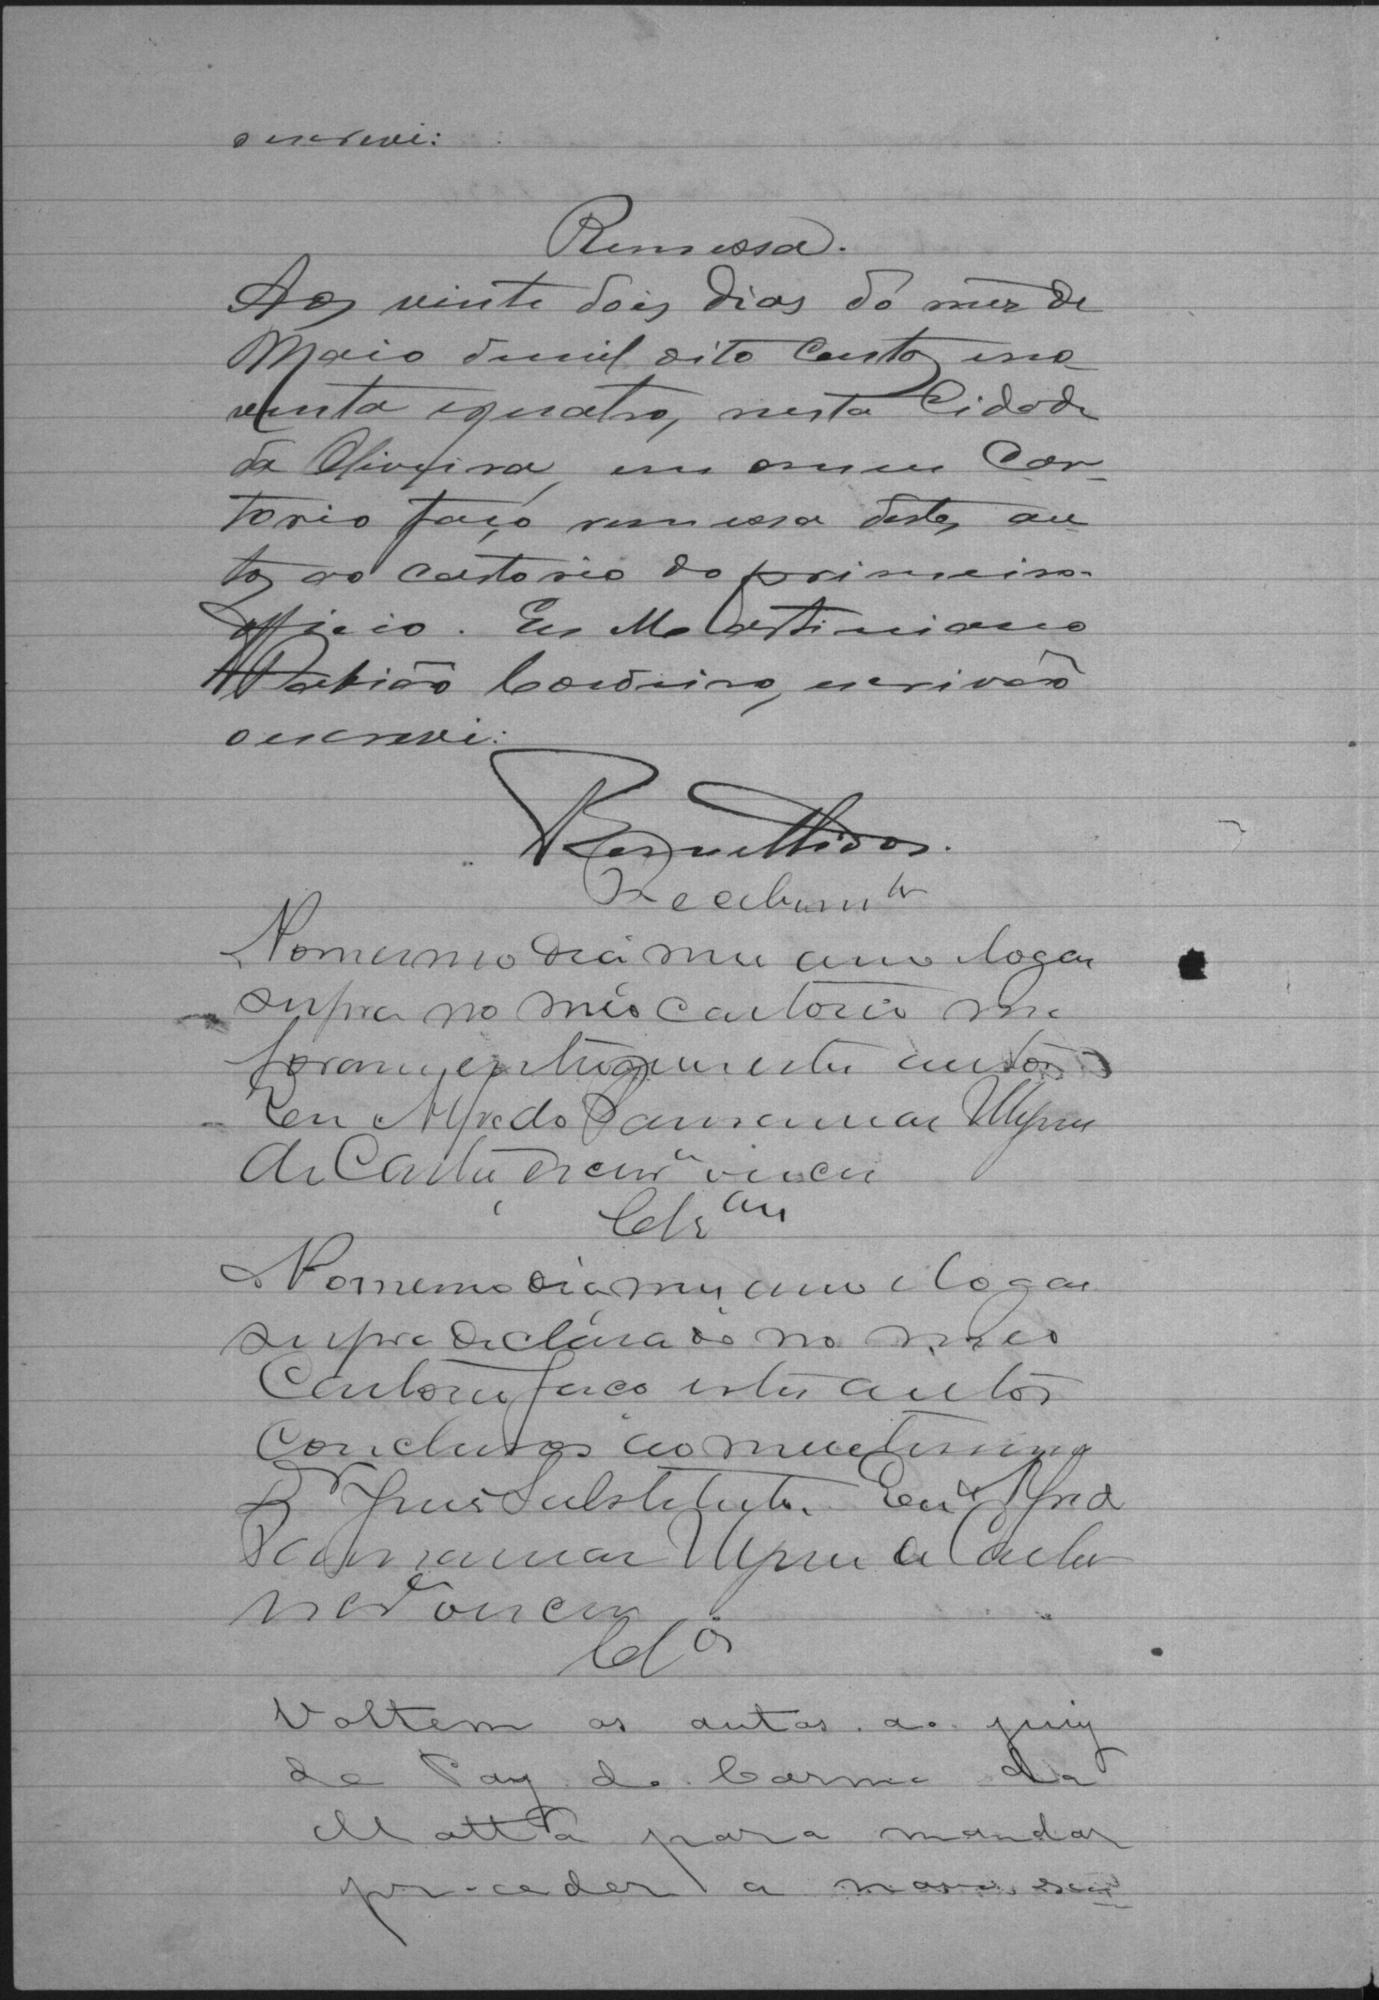 o escrevi:
Remessa.
Aos vinte dois dias dó mez de
Maio demil oito centos eno
venta equatro, nesta Cidade
da Oliveira, em omeu Car-
torio faço remessa destes au
tos ao cartorio do primeiro
officio. Eu Martiniano
Cordeiro, escrivão
o escrevi:
Recebim.to
No mesmo dia mez anno e logar
supra no meo cartorio me
foram entregues estes autos
Eu Alfredo
de Castro
Cls.
No mesmo dia mez anno e logar
supra declarado no meo
Cartorio faço estes autos
conclusos ao meretissimo
Dr Juis Substituto. Eu Alfredo
de Castro
Cl.os
Voltem os autos ao juiz
de Paz do Carmo da
Matta para mandar
proceder a novo